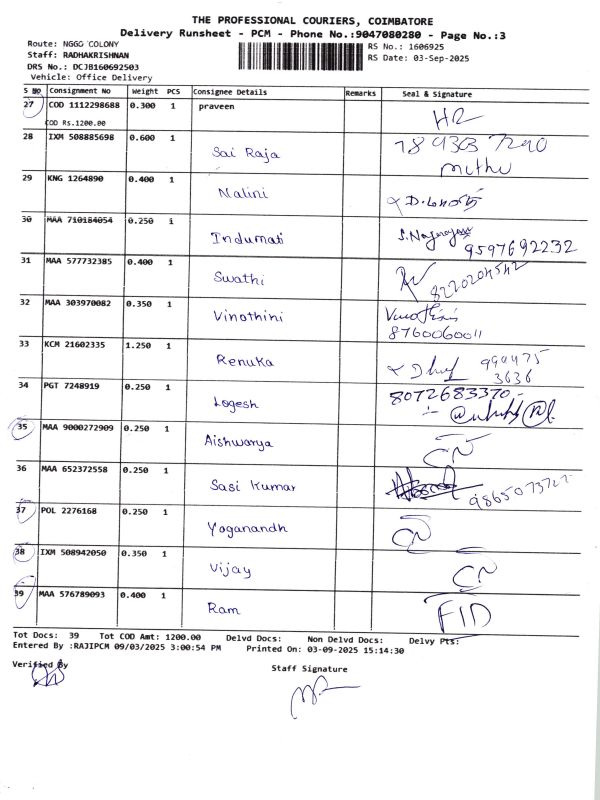 THE PROFESSIONAL COURIERS, COIMBATORE
Delivery Runsheet - PCM - Phone No.:9047080280 - Page No.:3
Route: NGGO COLONY
RS No.: 1606925
Staff: RADHAKRISHNAN
RS Date: 03-Sep-2025
DRS No.: DCJB160692503
Vehicle: Office Delivery
S No Consignment No Weight PCS Consignee Details Remarks Seal & Signature
27 COD 1112298688 0.300 1 praveen HR
COD Rs.1200.00
28 IXM 508885698 0.600 1 Sai Raja
muthu
29 KNG 1264890 0.400 1 Nalini
30 MAA 710184054 0.250 1 Indumati 9597692232
31 MAA 577732385 0.400 1 Swathi 8220204542
32 MAA 303970082 0.350 1 Vinothini
8760060011
33 KCM 21602335 1.250 1 Renuka 994475
3636
34 PGT 7248919 0.250 1 Logesh 8072683370
35 MAA 9000272909 0.250 1 Aishwarya CN
36 MAA 652372558 0.250 1 Sasi Kumar
37 POL 2276168 0.250 1 Yoganandh CN
38 IXM 508942050 0.350 1 Vijay CN
39 MAA 576789093 0.400 1 Ram FID
Tot Docs: 39 Tot COD Amt: 1200.00 Delvd Docs: Non Delvd Docs: Delvy Pts:
Entered By :RAJIPCM 09/03/2025 3:00:54 PM Printed On: 03-09-2025 15:14:30
Verified By
Staff Signature